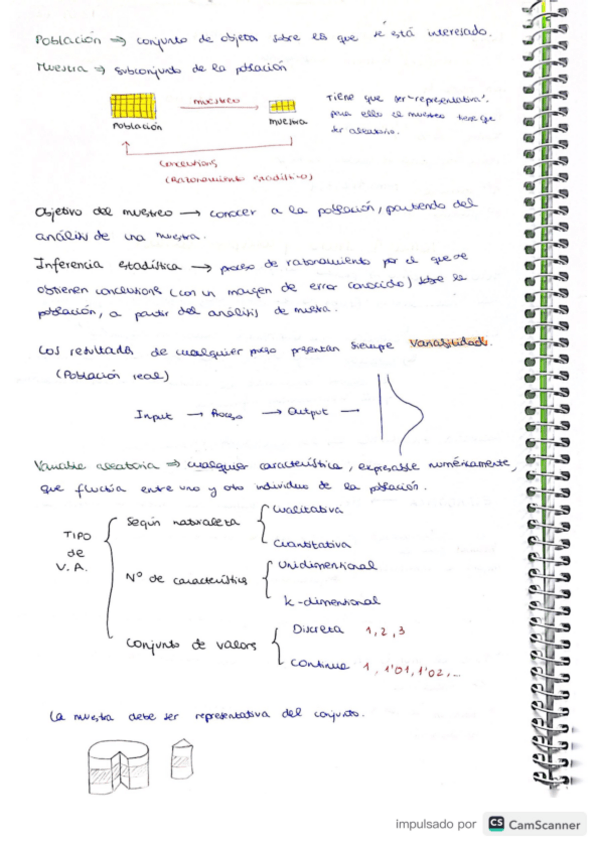 Población ⇒ conjunto de objetos sobre los que se está interesado.
Muestra ⇒ subconjunto de la población
muestreo
Población
muestra
Tiene que ser "representativa",
para ello el muestreo tiene que
ser aleatorio.
conclusiones
(Razonamiento estadístico)
Objetivo del muestreo → conocer a la población, partiendo del
análisis de una muestra.
Inferencia estadística → proceso de razonamiento por el que se
obtienen conclusiones (con un margen de error conocido) sobre la
población, a partir del análisis de muestra.
Los resultados de cualquier proceso presentan siempre variabilidad.
(Población real)
Input → Proceso → Output —
Variable aleatoria ⇒ cualquier característica, expresable numéricamente,
que fluctúa entre uno y otro individuo de la población.
TIPO
de
V.A.
Según naturaleza
Cualitativa
Cuantitativa
Nº de características
Unidimensional
k-dimensional
Conjunto de valores
Discreta 1, 2, 3
Continua 1, 1'01, 1'02, ...
La muestra debe ser representativa del conjunto.
impulsado por CS CamScanner